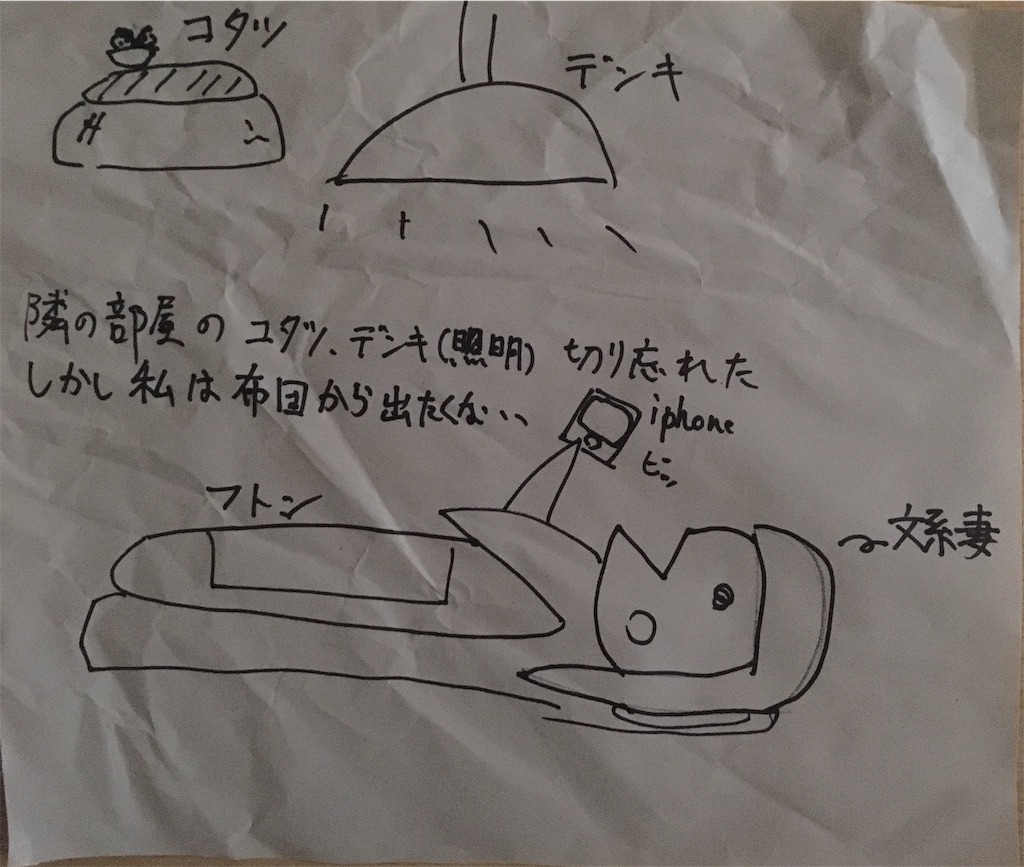 コタツ
デンキ
隣の部屋のコタツ、デンキ(照明)切り忘れた
しかし私は布団から出たくない、、
iphone
ピッ
フトン
文系妻